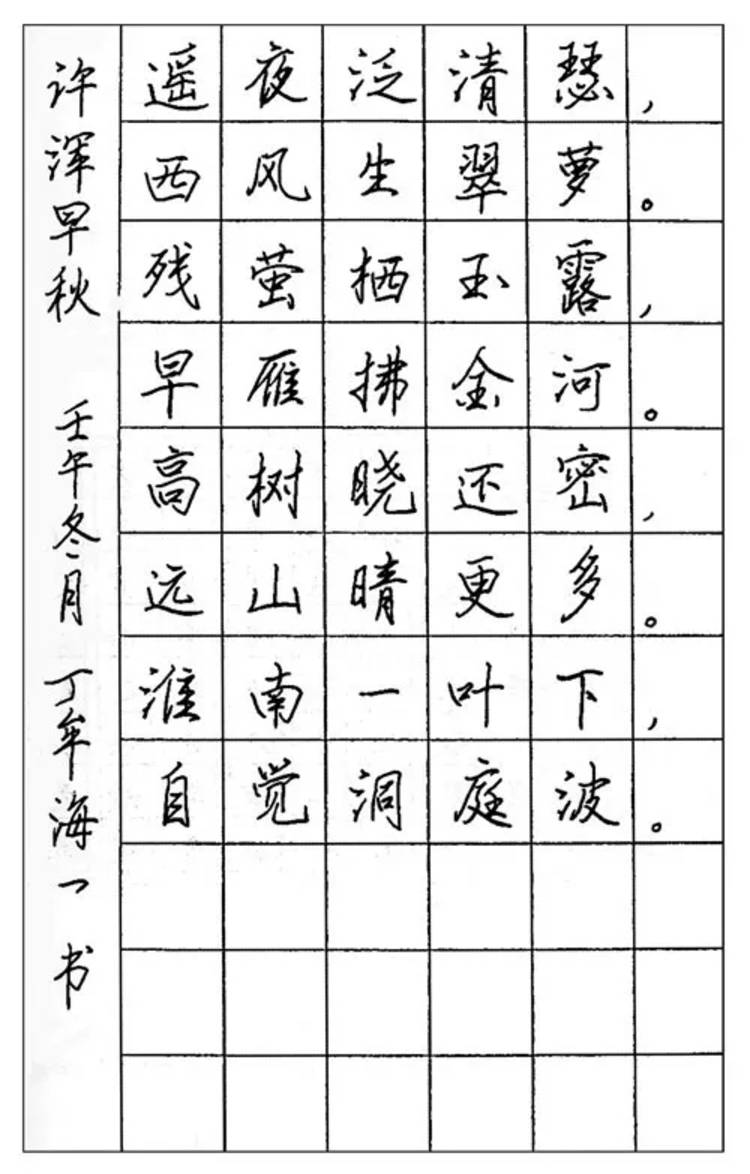 许浑早秋 壬午冬月 丁牟海一书
遥夜泛清瑟，
西风生翠萝。
残萤栖玉露，
早雁拂金河。
高树晓还密，
远山晴更多。
淮南一叶下，
自觉洞庭波。